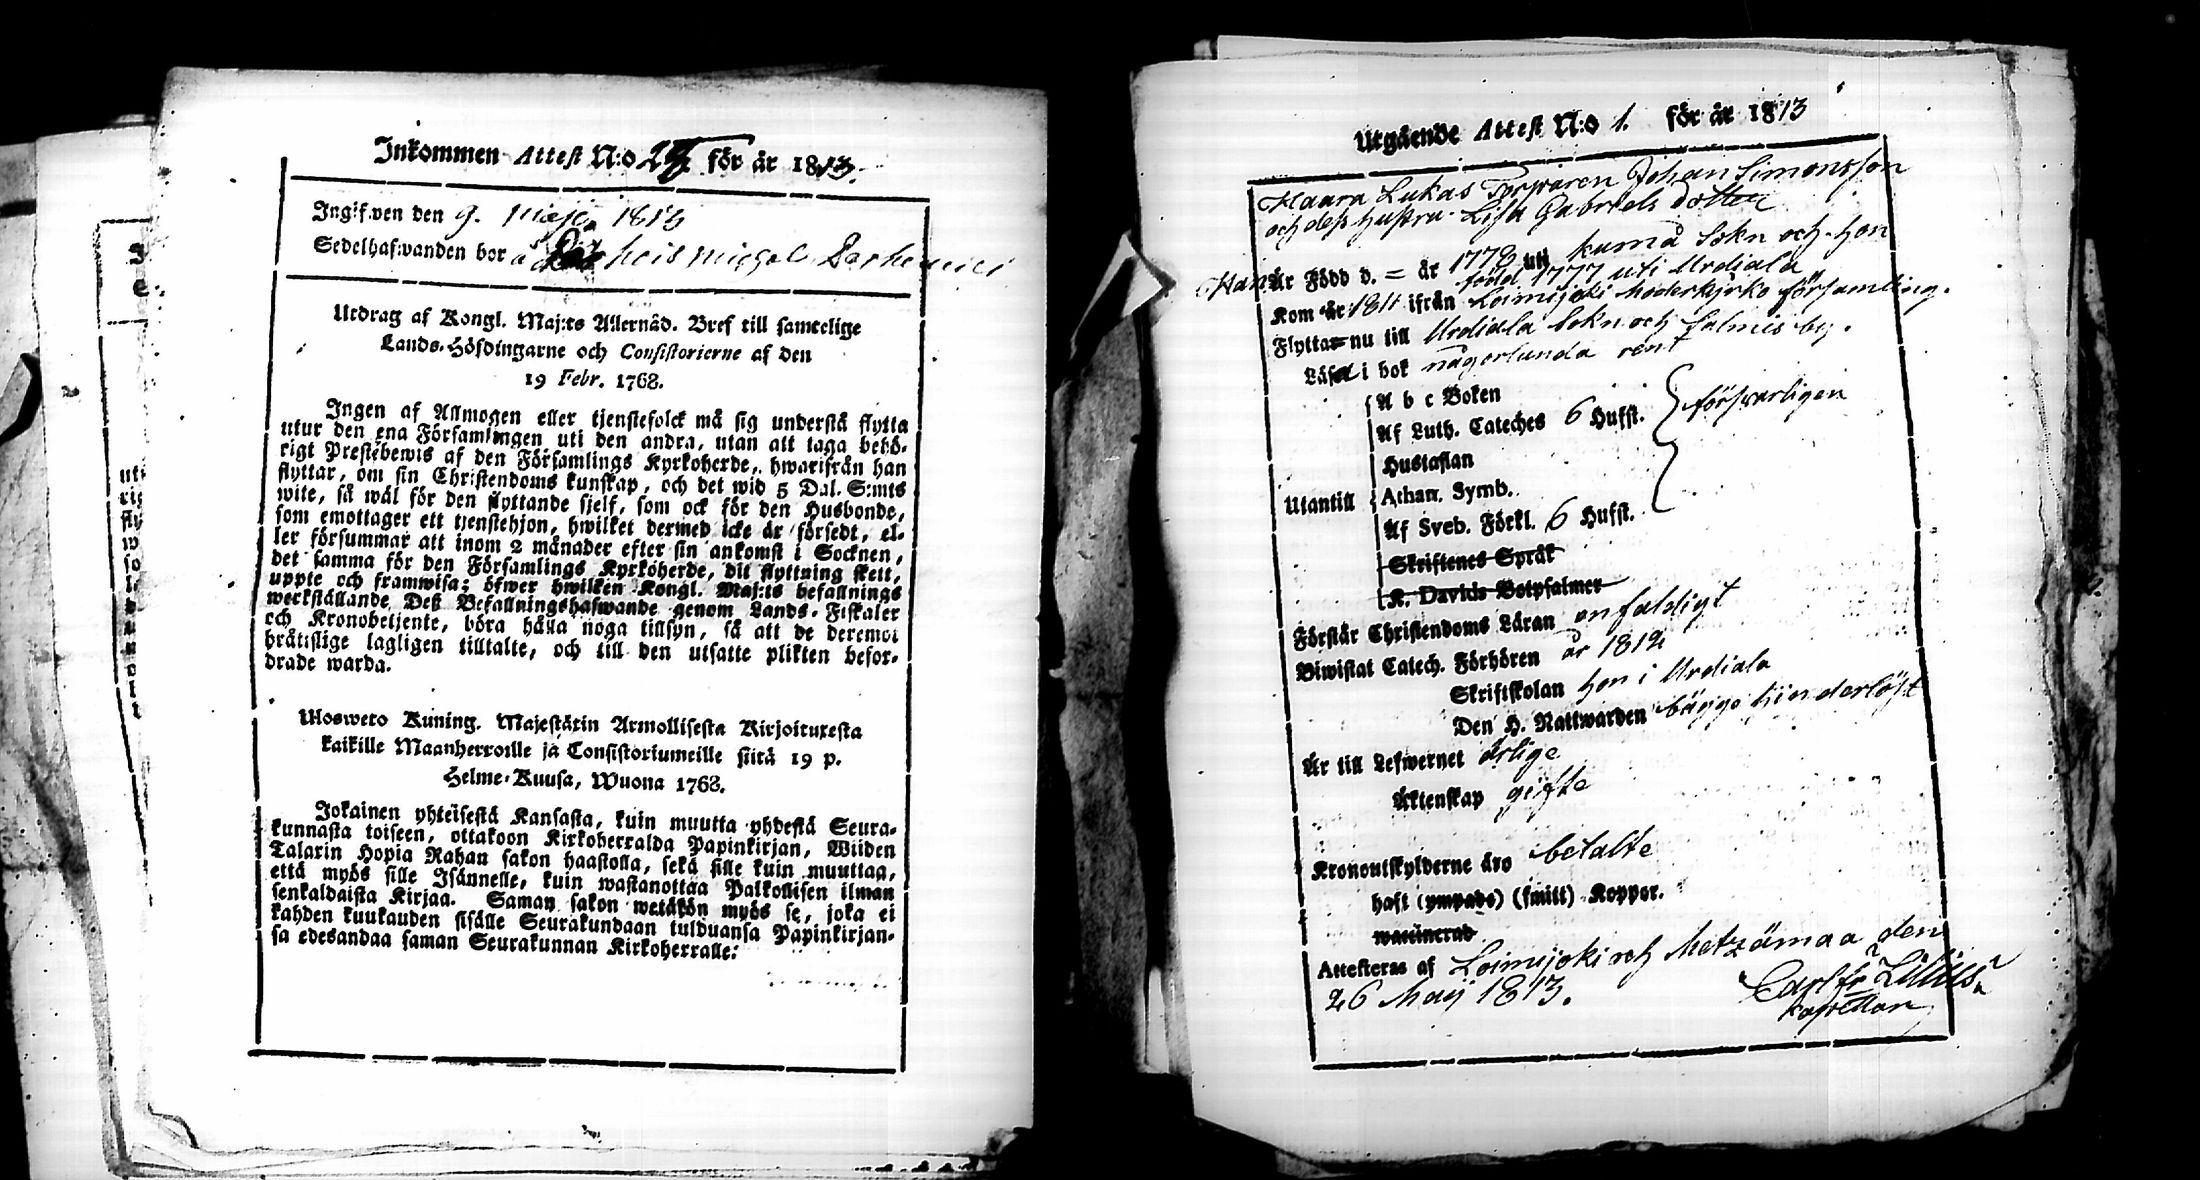 Inkommen Attest N:o 29 för år 1813.
Ingifwen den 9. Maji 1813
Sedelhafwanden bor å
Utdrag af Kongl. Maj:ts Allernåd. Bref till samtelige
Lands-Höfdingarne och Consistorierne af den
19 Febr. 1768.
Ingen af Allmogen eller tjenstefolck må sig understå flytta
utur den ena Församlingen uti den andra, utan att taga behö-
rigt Prestebewis af den Församlings Kyrkoherde, hwarifrån han
flyttar, om sin Christendoms kunskap, och det wid 5 Dal. S:mts
wite, så wäl för den flyttande sjelf, som ock för den Husbonde,
som emottager ett tjenstehjon, hwilket dermed icke är försedt, el-
ler försummar att inom 2 månader efter sin ankomst i Socknen,
det samma för den Församlings Kyrkoherde, dit flyttning skett,
uppte och framwisa; öfwer hwilken Kongl. Maj:ts befallnings
werkställande Deß Befallningshafwande genom Lands-Fiskaler
och Kronobetjente, böra hålla noga tillsyn, så att de deremot
bråtislige lagligen tilltalte, och till den utsatte plikten befor-
drade warda.
Ulosweto Kuning. Majestätin Armollisesta Kirjoituxesta
kaikille Maanherroille ja Consistoriumeille siitä 19 p.
Helme-Kuusa, Wuona 1768.
Jokainen yhteisestä Kansasta, kuin muutta yhdestä Seura-
kunnasta toiseen, ottakoon Kirkoherralda Papinkirjan, Wiiden
Talarin Hopia Rahan sakon haastolla, sekä sille kuin muuttaa,
että myös sille Isännelle, kuin wastanottaa Palkollisen ilman
senkaldaista Kirjaa. Saman sakon wetäkön myös se, joka ei
kahden kuukauden sisälle Seurakundaan tulduansa Papinkirjan-
sa edesandaa saman Seurakunnan Kirkoherralle:
Utgående Attest N:o 1. för år 1813
Haara Lukas Torparen Johan Simonsson
och deß Hustru Lisa Gabriels dotter
Han Är Född d. = år 1778 uti kumå Sokn och hon
född 1777 uti Urdiala
Kom år 1811 ifrån Loimijoki Moderkyrko församling.
Flyttar nu till Urdiala Sokn och Salmis by.
Läsa i bok någorlunda rent
A b c Boken
Af Luth. Cateches 6 Hufst. försvarligen
Hustaflan
Utantill Athan. Symb.
Af Sveb. Förkl. 6 Hufst.
Skriftenes Språk
K. Davids Botpsalmer
Förstår Christendoms Läran enfaldigt
Biwistat Catech. Förhören år 1812
Skriftskolan hon i Urdiala
Den H. Nattwarden bägge hinderlöst
Är till Lefwernet ärlige
Äktenskap gifte
Kronoutskylderne äro betalte
haft (ympade) (smitt) Koppor.
waccinerad
Attesteras af Loimijoki och Metzämaa den
26 Maij 1813. Carl Fr Lilius
Kapellan